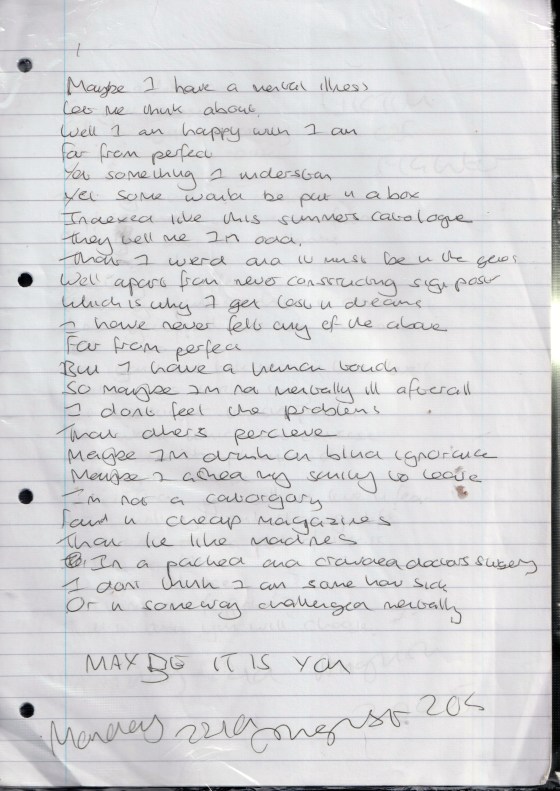 1
Maybe I have a mental illness
Let me think about.
Well I am happy when I am
Far from perfect
Yet something I understan
Yet some would be put in a box
Indexed like this summers catologue
They tell me Im odd.
That I weird and it must be in the genes
Well apart from never constructing sign post
Which is why I get lost in dreams
I have never felt any of the above
Far from perfect
But I have a human touch
So maybe Im not mentally ill afterall
I dont feel the problems
That others percieve
Maybe Im drunk on blind ignorance
Maybe I asked my sanity to leave
Im not a catorgary
Found in cheap magazines
That lie like madnes
In a packed and crowded doctors surgery
I dont think I am some how sick
Or in someway challenged mentally
MAYBE IT IS YOU
Monday 22nd August